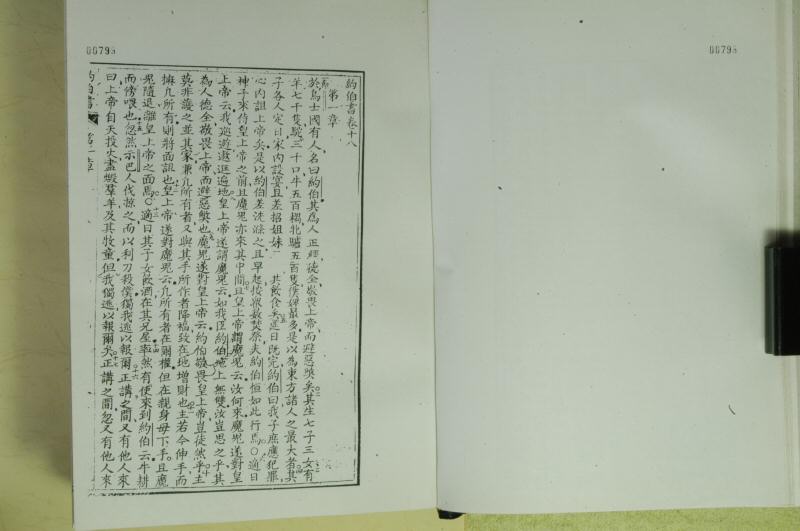 00798
00798
約伯書卷十八
第一章
於烏士國有人名曰約伯其爲人正經徒全敬畏上帝而避惡獎矣其生七子三女有
羊七千隻駝三千口牛五百耦牝驢五百隻僕婢最多是以為東方諸人之最大者其
子各人定日家內設宴且差招姐妹 其飲食矣筵日既完約伯曰我子庶應犯罪
心內詛上帝矣是以約伯差洗滌之且早起按衆數焚祭夫約伯恒如此行焉○適日
神子來侍皇上帝之前且魔鬼亦來其中間且皇上帝謂魔鬼云汝何來魔鬼遂對皇
上帝云我巡遊遨遐遍地皇上帝遂謂魔鬼云如我臣約伯地上無雙汝豈思之乎其
為人德全敬畏上帝而避惡獎也魔鬼遂對皇上帝云約伯敬畏皇上帝豈徒然乎主
莫非護之並其家兼凡所有者又與其手所作者降福致在地增財也主若令伸手而
擵凡所有則將面詛也皇上帝遂對魔鬼云凡所有者在爾權但在親身毋下手且魔
鬼隨退離皇上帝之面焉○適日其子女飲酒在其兄屋率然有使來到約伯云牛耕
而傍喂也忽然示巴人伐掠之而以利刀殺僕獨我逃以報爾正講之間又有他人來
曰上帝自天投火盡燬羣羊及其牧童但我獨逃以報爾矣正講之間忽又有他人來
約伯書 第一章